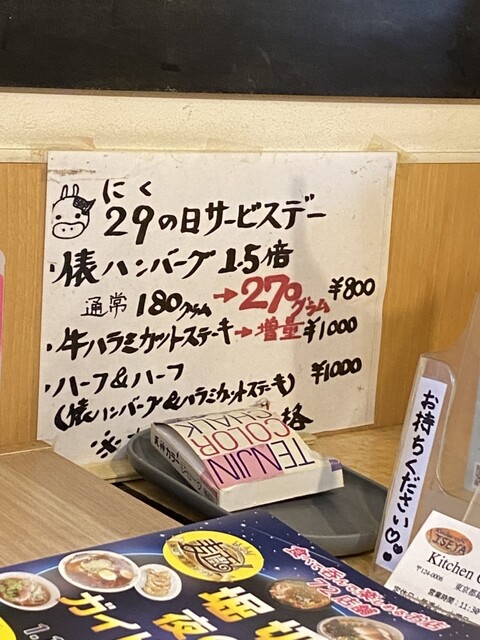 にく
29の日サービスデー
・俵ハンバーグ 1.5倍
通常 180グラム→270グラム ¥800
・牛ハラミカットステーキ→増量 ¥1000
・ハーフ&ハーフ ¥1000
(俵ハンバーグ&ハラミカットステーキ)
格
TENJIN
COLOR
CHALK
お持ちください♡♡
ISEYA
Kitchen
〒124-0006 東京都
営業時間:11:30
堀切
夜の
ガイド
72店舗